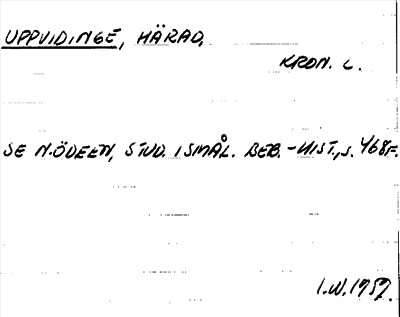 UPPVIDINGE, HÄRAD.
KRON. L.
SE N. ÖDEEN, STUD. I SMÅL. BEB.-HIST., S. 468F.
I.W. 1959.